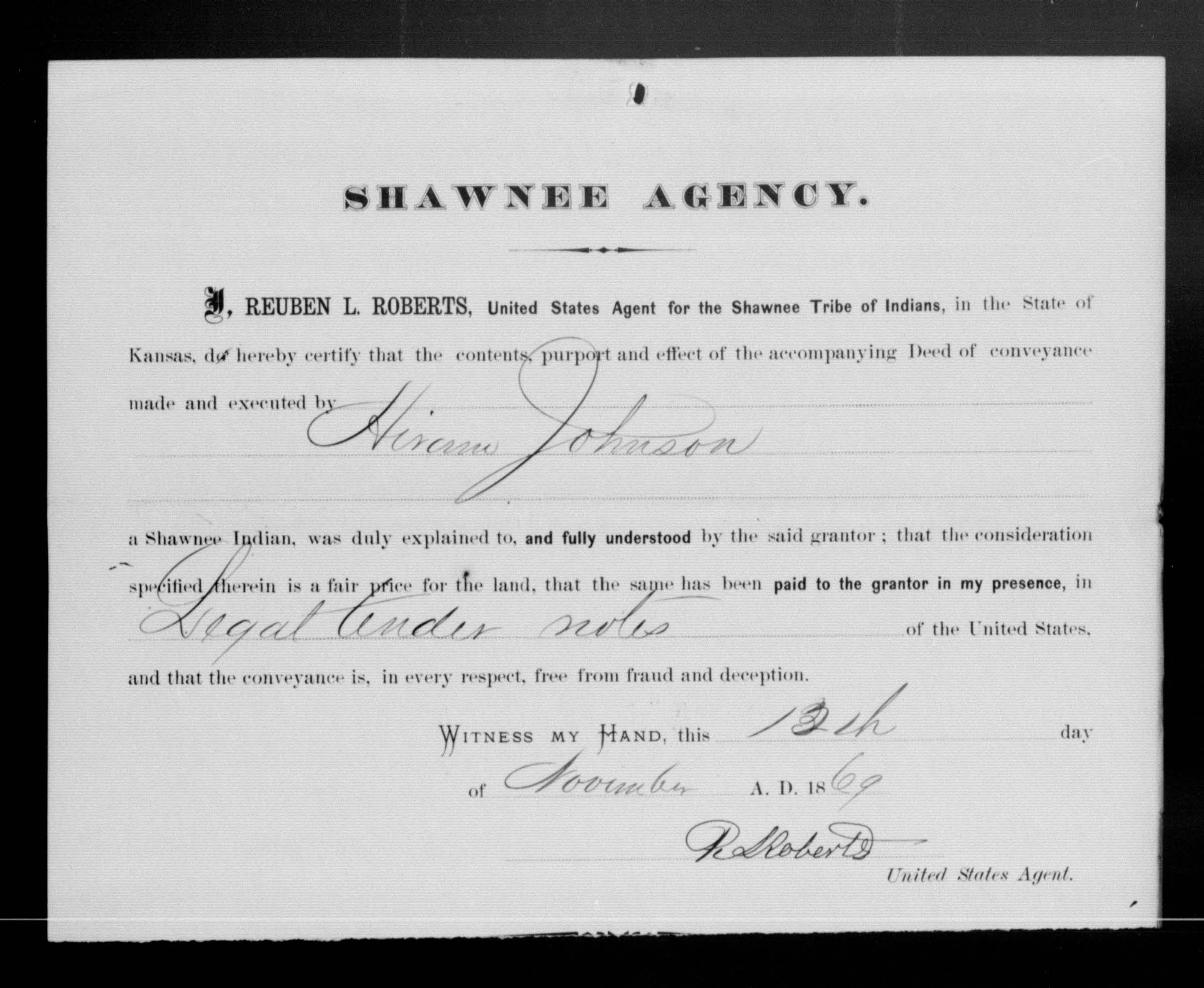 SHAWNEE AGENCY.
I, REUBEN L. ROBERTS, United States Agent for the Shawnee Tribe of Indians, in the State of
Kansas, do hereby certify that the contents, purport and effect of the accompanying Deed of conveyance
made and executed by
Hiram Johnson
a Shawnee Indian, was duly explained to, and fully understood by the said grantor; that the consideration
specified therein is a fair price for the land, that the same has been paid to the grantor in my presence, in
Legal tender notes of the United States,
and that the conveyance is, in every respect, free from fraud and deception.
WITNESS MY HAND, this day
of November A. D. 1869
R L Roberts
United States Agent.